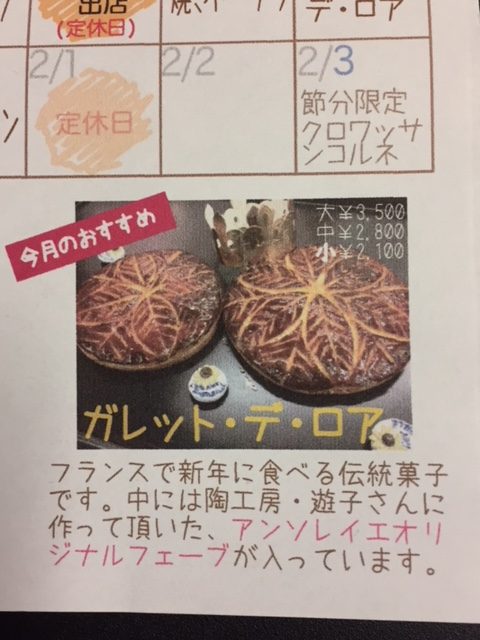 出店
(定休日)
デ・ロア
2/1
2/2
2/3
ン
定休日
節分限定
クロワッサ
ンコルネ
今月のおすすめ
大¥3,500
中¥2,800
小¥2,100
ガレット・デ・ロア
フランスで新年に食べる伝統菓子
です。中には陶工房・遊子さんに
作って頂いた、アンソレイエオリ
ジナルフェーブが入っています。